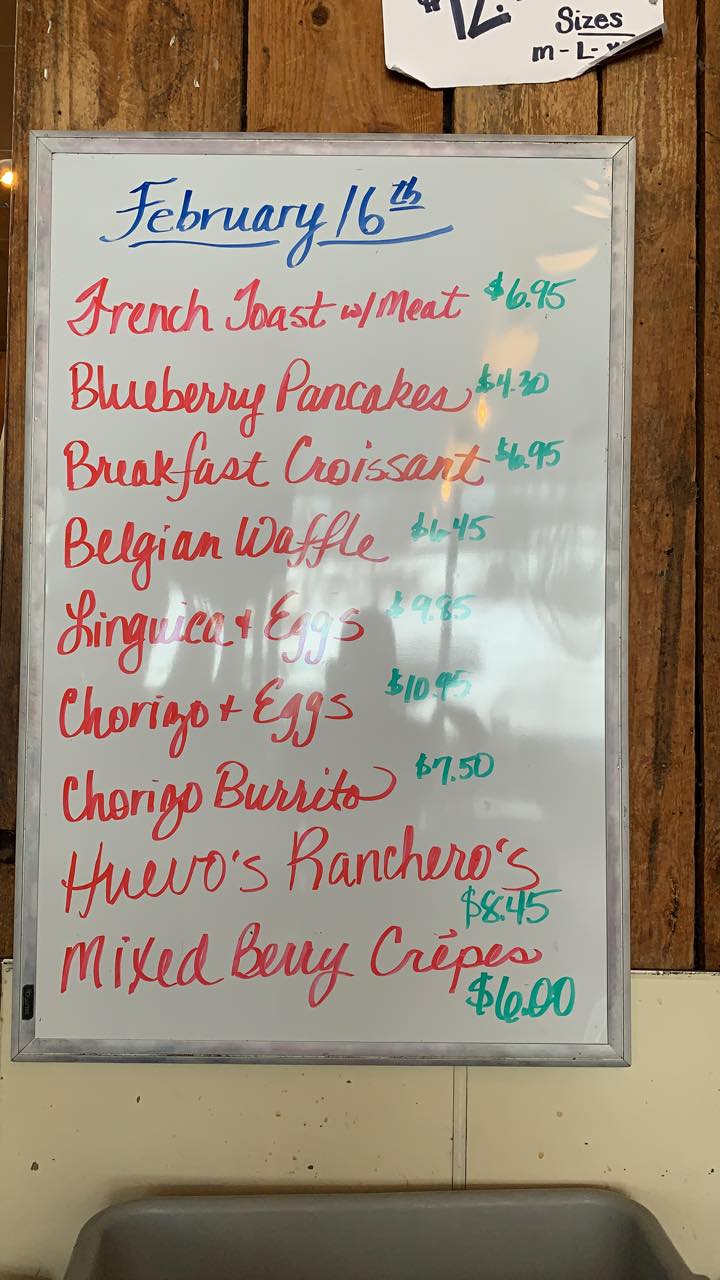 $12.
Sizes
m - L -
February 16th
French Toast w/Meat $6.95
Blueberry Pancakes $4.30
Breakfast Croissant $6.95
Belgian Waffle $6.45
Linguica + Eggs $9.85
Chorizo + Eggs $10.95
Chorizo Burrito $7.50
Huevo's Ranchero's
$8.45
Mixed Berry Crêpes
$6.00